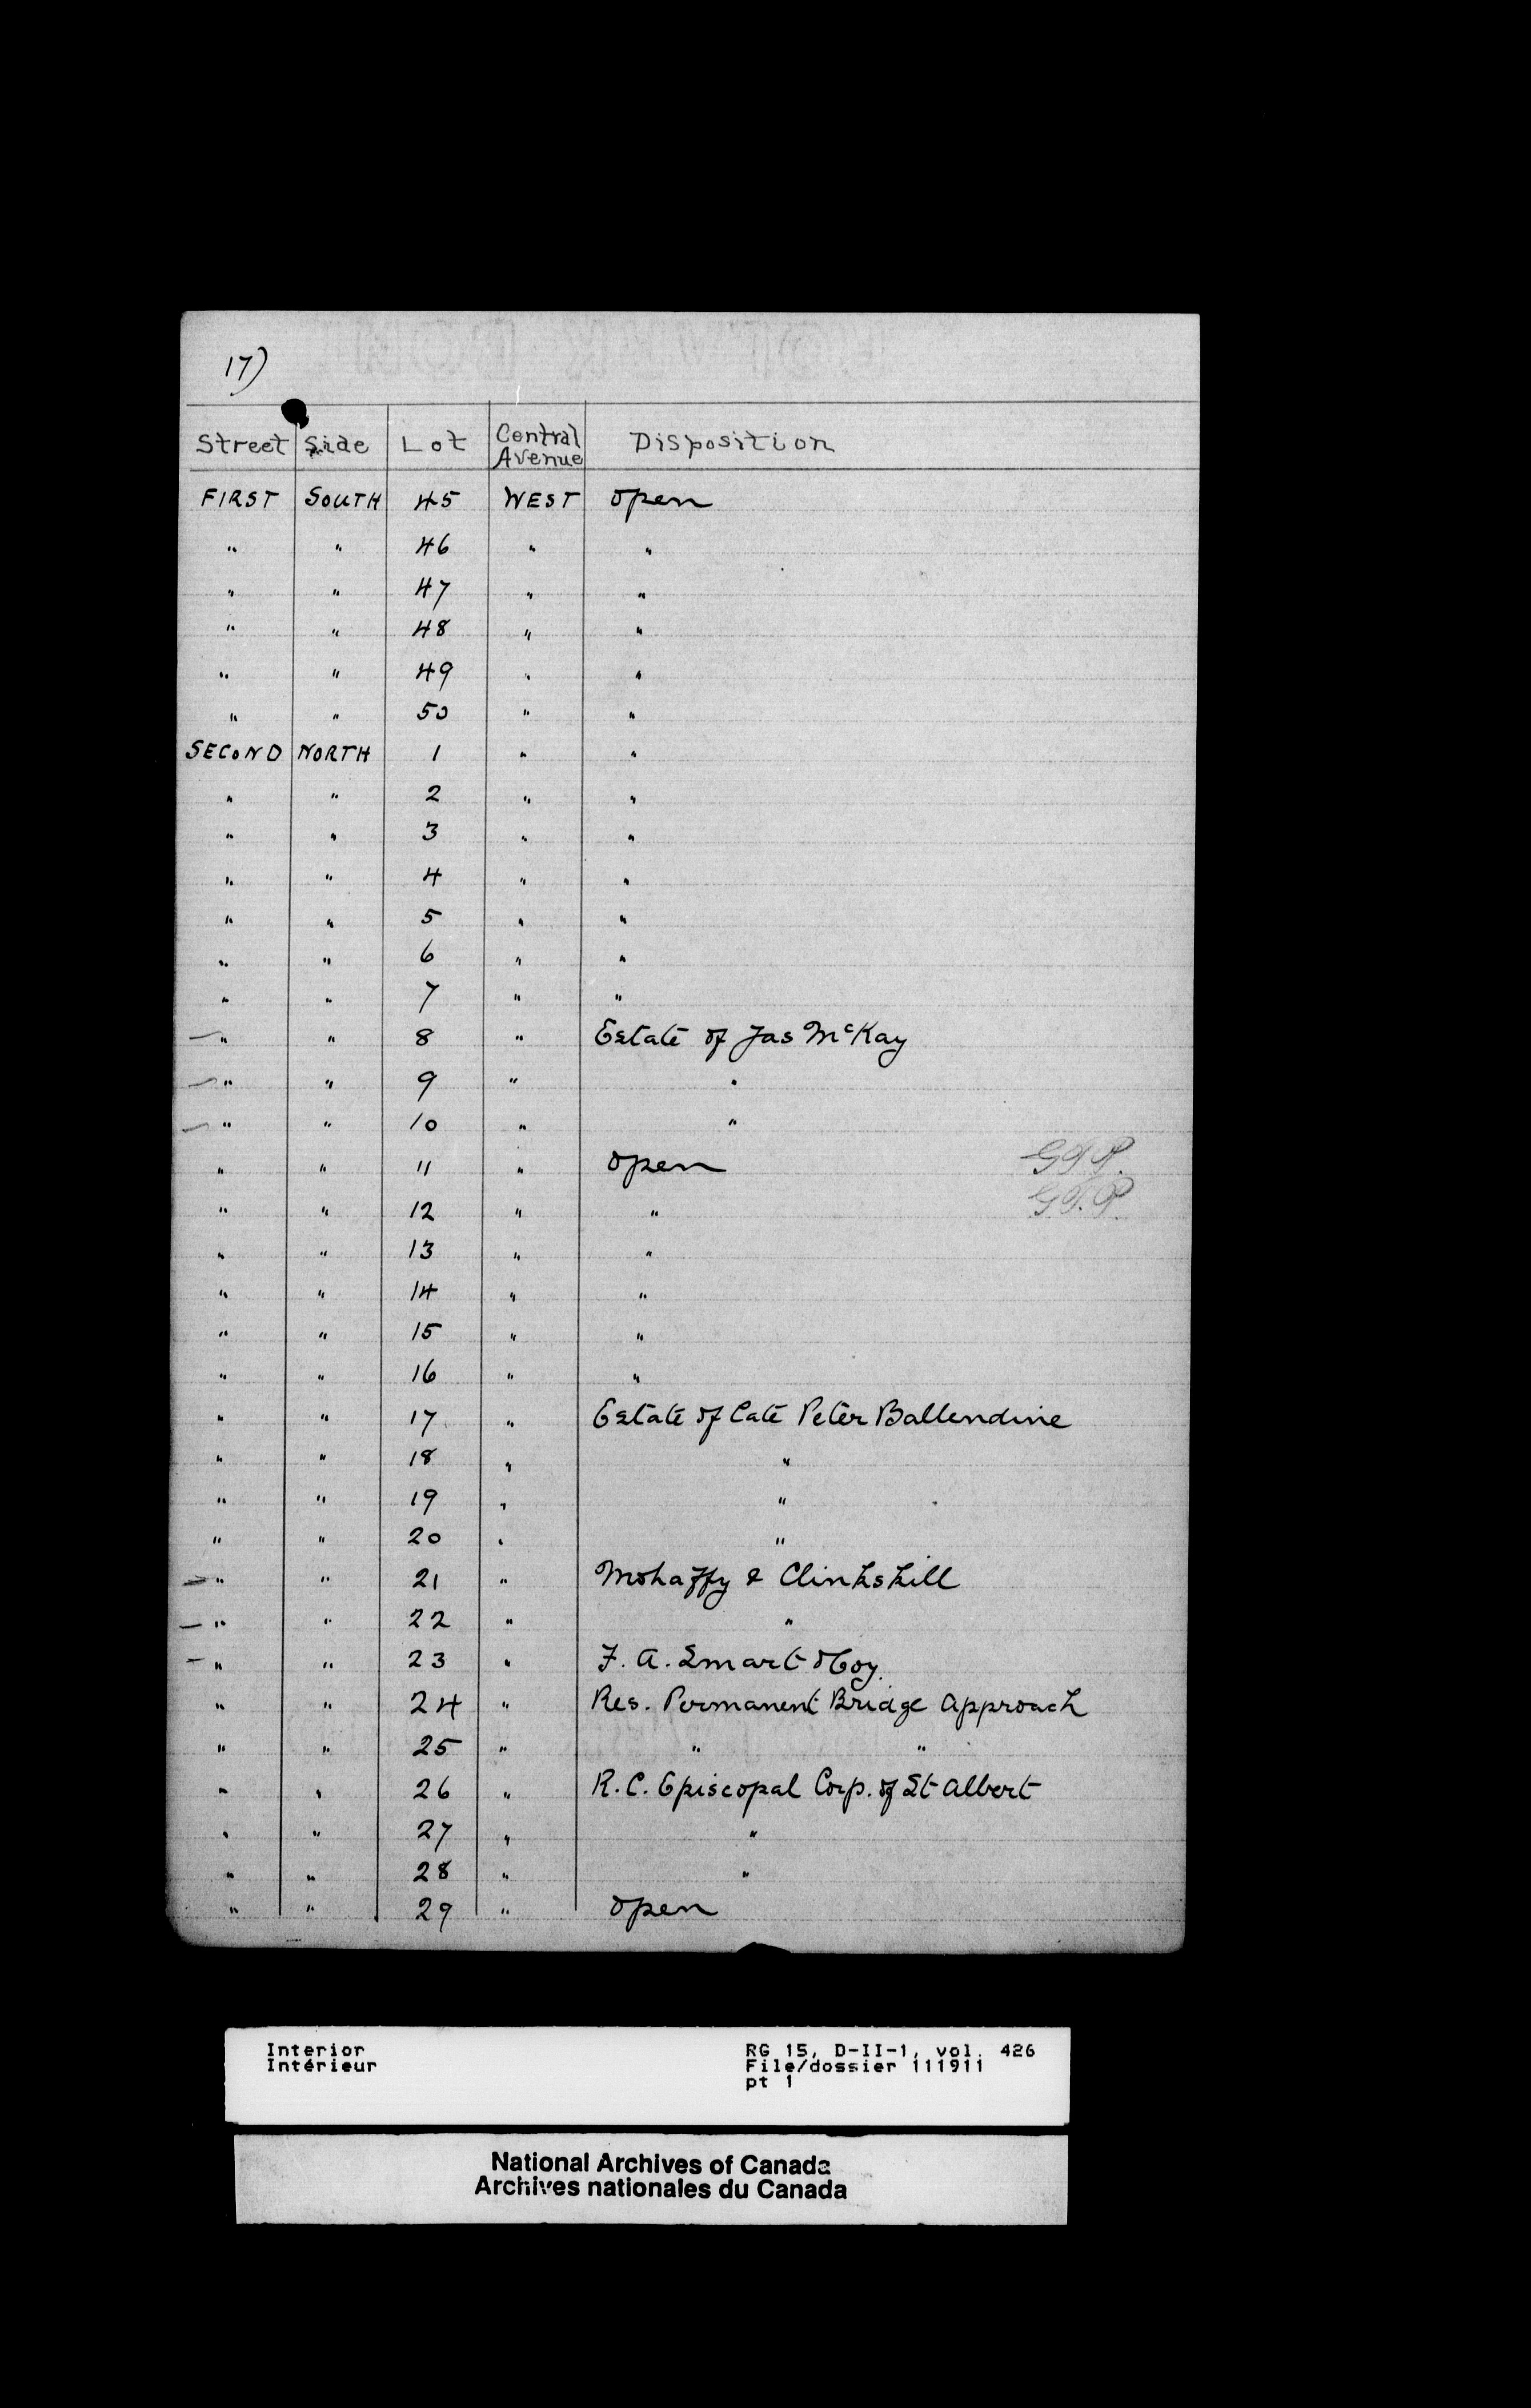 17)
Street Side Lot Central Avenue Disposition
FIRST SOUTH 45 WEST open
" " 46 " "
" " 47 " "
" " 48 " "
" " 49 " "
" " 50 " "
SECOND NORTH 1 " "
" " 2 " "
" " 3 " "
" " 4 " "
" " 5 " "
" " 6 " "
" " 7 " "
— " " 8 " Estate of Jas McKay
— " " 9 " "
— " " 10 " "
" " 11 " open G.T.P.
" " 12 " " G.T.P.
" " 13 " "
" " 14 " "
" " 15 " "
" " 16 " "
" " 17 " Estate of late Peter Ballendine
" " 18 " "
" " 19 " "
" " 20 " "
— " " 21 " Mohaffy & Clinkskill
— " " 22 " "
— " " 23 " F. A. Smart & Coy.
" " 24 " Res. Permanent Bridge Approach
" " 25 " " "
" " 26 " R.C. Episcopal Corp. of St Albert
" " 27 " "
" " 28 " "
" " 29 " open
Interior RG 15, D-II-1, vol. 426
Intérieur File/dossier 111911
pt 1
National Archives of Canada
Archives nationales du Canada